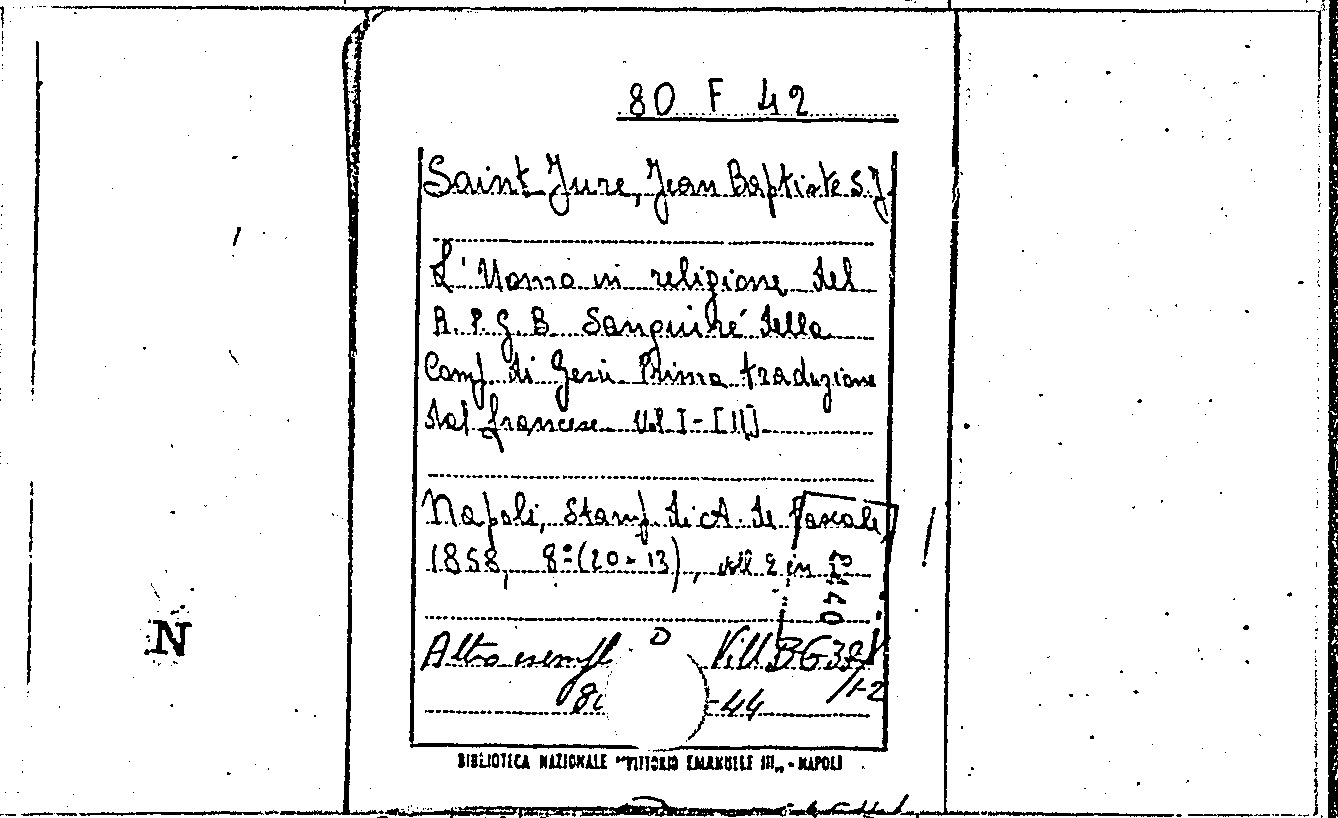 80 F 42
Saint Jure, Jean Baptiste S.J.
L'Uomo in religione del
R. P. G. B. Sanguiré della
Comp. di Gesù Prima traduzione
dal francese Vol I-[II]
Napoli, Stamp. di A. de Pascale,
1858, 8°(20-13), voll 2 in
Altro esempl. Vill. BG
/1-2
-44
N
BIBLIOTECA NAZIONALE "VITTORIO EMANUELE III„ - NAPOLI